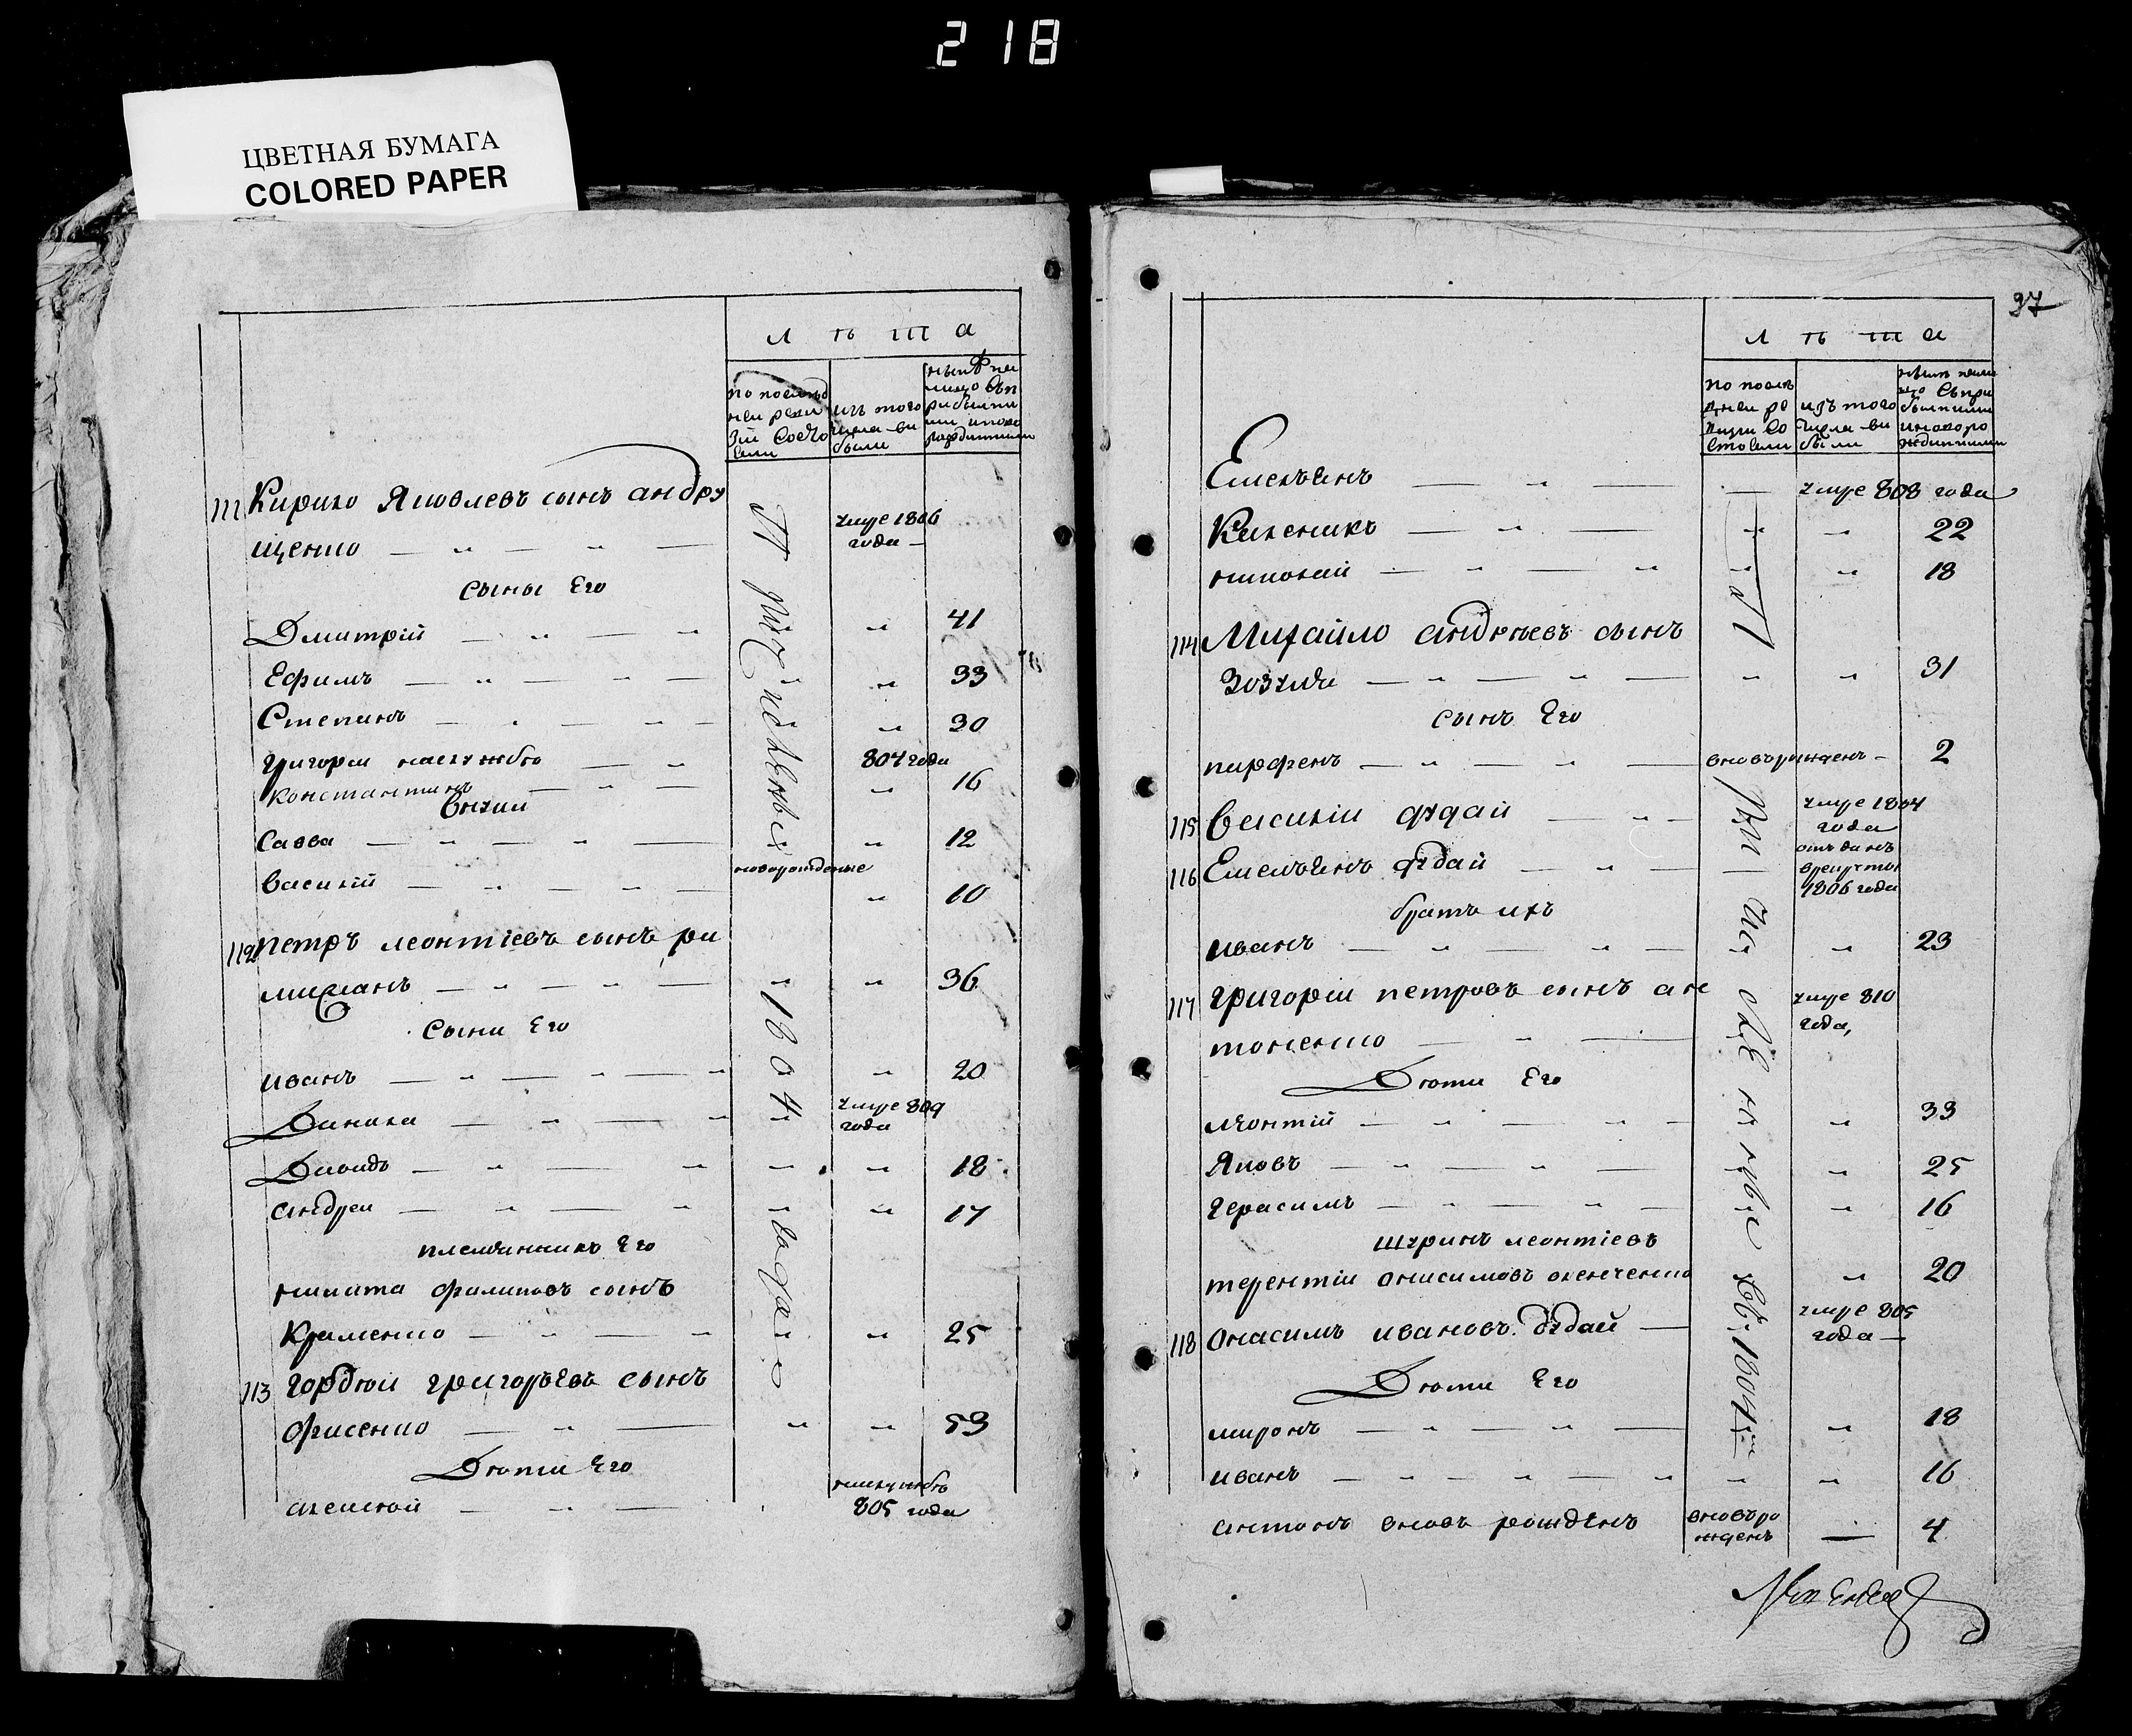 218
ЦВЕТНАЯ БУМАГА
COLORED PAPER
лѣта
по послѣд
ней реви
зіи состо
яли
изъ того
числа вы
были
111 Кирило Яковлевъ сынъ андру
щенко
умре 1806
года
сыны Его
Дмитрій 41
Ефимъ 33
Степанъ 30
григореи наслужбѣ 804 года
константинъ 16
внуки
Савва 12
новорожденые
василій 10
112 петръ леонтіевъ сынъ ра
36
Сыни Его
иванъ 20
Данила умре 809
года
Давидъ 18
андреи 17
племянникъ Его
никита филиповъ сынъ
Краменко 25
113 гордѣи григорьевъ сынъ
фисенко 53
Дѣти Его
алексѣй
наслужбѣ
805 года
1804
37
лѣта
по послѣ
дней ре
визии со
стояли
изъ того
числа вы
были
Емельянъ умре 808 года
Каленикъ 22
николай 18
114 Михайло андреевъ сынъ
Зозуля 31
сынъ Его
парфенъ вновьрожденъ 2
115 василіи дудай умре 1804
года
116 Емельянъ дудай отъданъ
врекруты
1806 года
братъ ихъ
иванъ 23
117 григоріи петровъ сынъ ан
тоненко
умре 810
года,
Дѣти Его
леонтій 33
Яковъ 25
герасимъ 16
шуринъ леонтіевъ
терентіи анисимовъ 20
118 онасимъ ивановъ дудай умре 805
года
Дѣти Его
миронъ 18
иванъ 16
антонъ вновь рожденъ вновьро
жденъ 4
1804